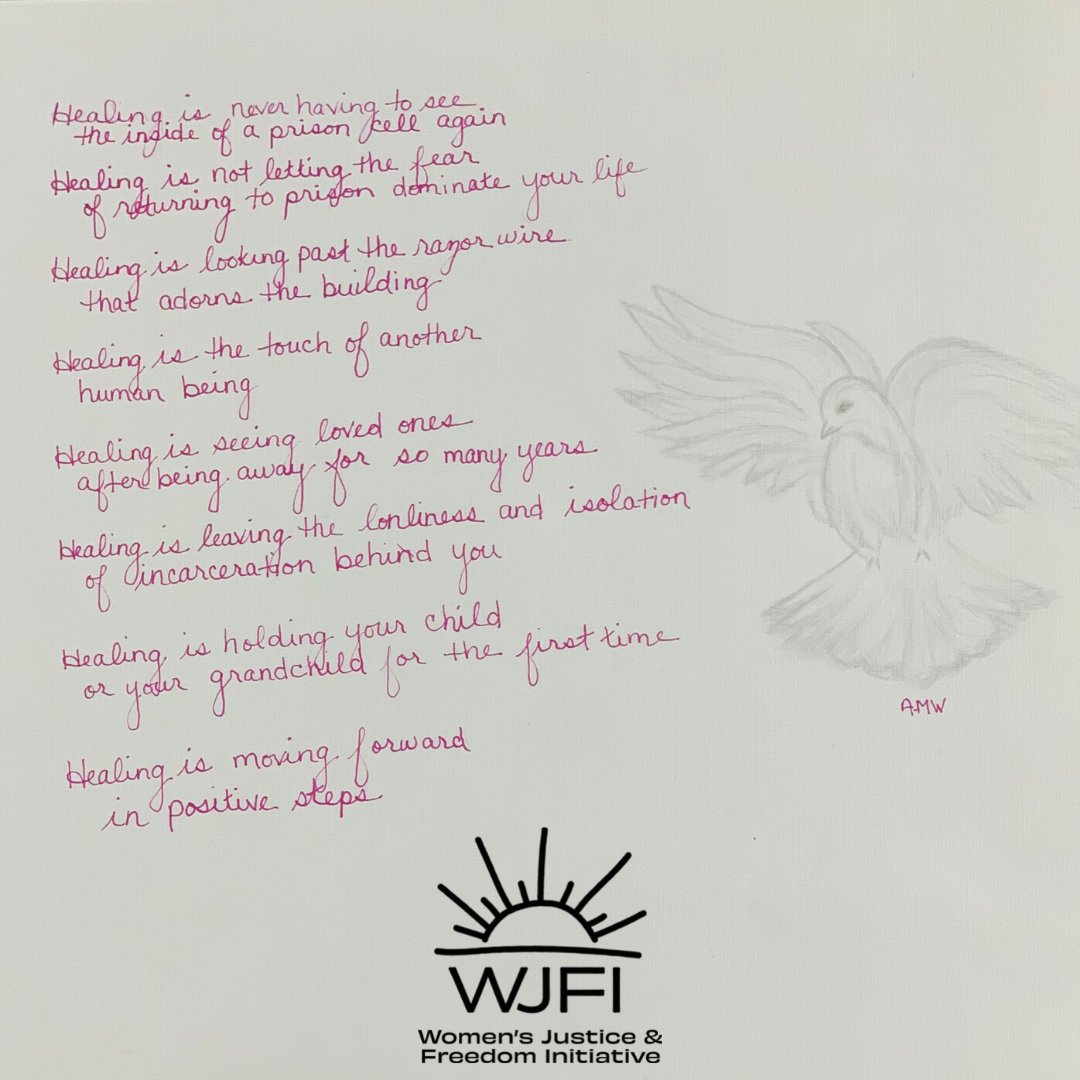 Healing is never having to see
the inside of a prison cell again
Healing is not letting the fear
of returning to prison dominate your life
Healing is looking past the razor wire
that adorns the building
Healing is the touch of another
human being
Healing is seeing loved ones
after being away for so many years
Healing is leaving the lonliness and isolation
of incarceration behind you
Healing is holding your child
or your grandchild for the first time
Healing is moving forward
in positive steps
AMW
WJFI
Women's Justice &
Freedom Initiative